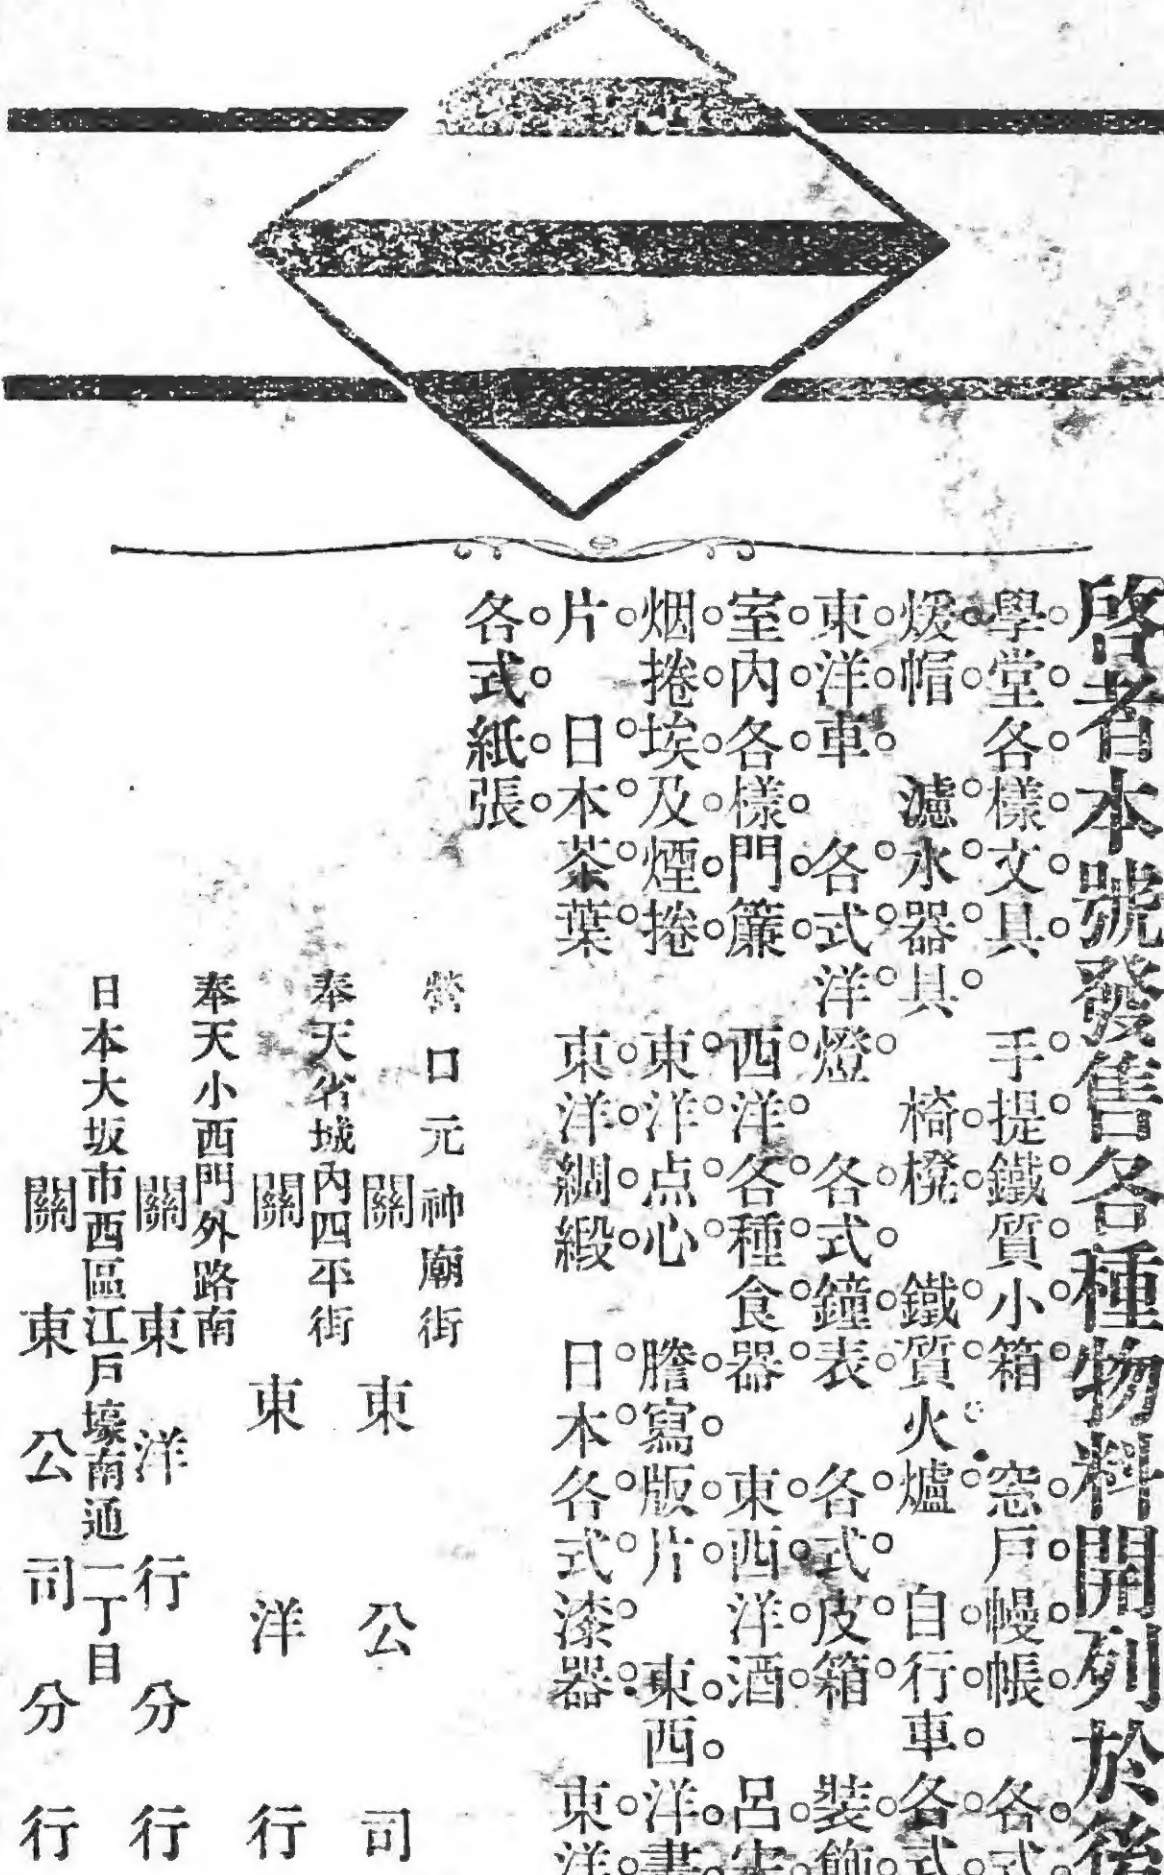 啓者本號發售各種物料開列於後
學堂各樣文具　手提鐵質小箱　窓戶幔帳　各式
煖帽　濾水器具　椅櫈　鐵質火爐　自行車　各式
東洋車　各式洋燈　各式鐘表　各式皮箱　裝飾
室內各樣門簾　西洋各種食器　東西洋酒　呂宋
烟捲埃及煙捲　東洋点心　謄寫版片　東西洋書
片　日本茶葉　東洋綢緞　日本各式漆器　東洋
各式紙張
營口元神廟街
關東公司
奉天省城內四平街
關東洋行
奉天小西門外路南
關東洋行分行
日本大坂市西區江戶壕南通二丁目
關東公司分行